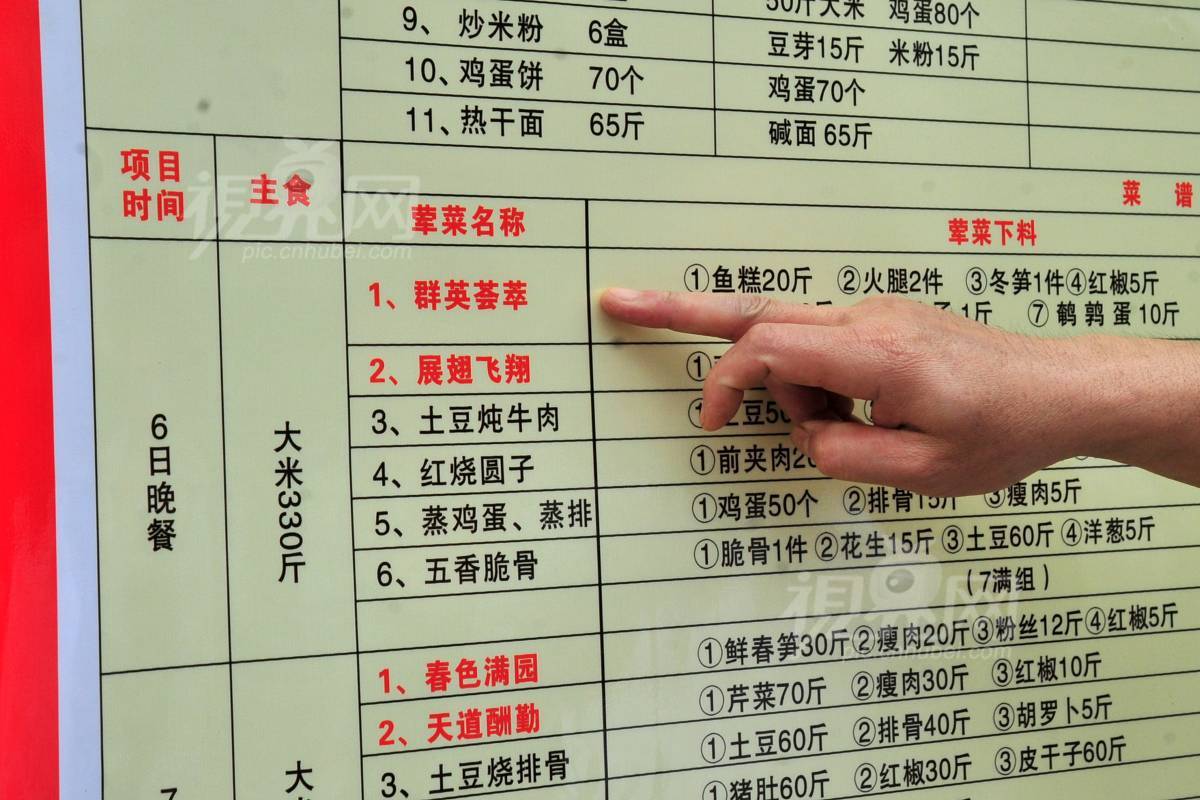 50斤大米 鸡蛋80个
9、 炒米粉 6盒 豆芽15斤 米粉15斤
10、鸡蛋饼 70个 鸡蛋70个
11、热干面 65斤 碱面 65斤
项目
时间
主食
菜 谱
荤菜名称 荤菜下料
视界网
pic.cnhubei.com
6日晚餐
大米330斤
1、群英荟萃 ①鱼糕20斤 ②火腿2件 ③冬笋1件④红椒5斤
1斤 ⑦ 鹌鹑蛋10斤
2、展翅飞翔 ①
3、土豆炖牛肉 ①土豆50
4、红烧圆子 ①前夹肉
5、蒸鸡蛋、蒸排 ①鸡蛋50个 ②排骨15斤 ③瘦肉5斤
6、五香脆骨 ①脆骨1件 ②花生15斤 ③土豆60斤 ④洋葱5斤
（7满组）
视界网
pic.cnhubei.com
7
大米
1、春色满园 ①鲜春笋30斤②瘦肉20斤③粉丝12斤④红椒5斤
2、天道酬勤 ①芹菜70斤 ②瘦肉30斤 ③红椒10斤
3、土豆烧排骨 ①土豆60斤 ②排骨40斤 ③胡罗卜5斤
①猪肚60斤 ②红椒30斤 ③皮干子60斤